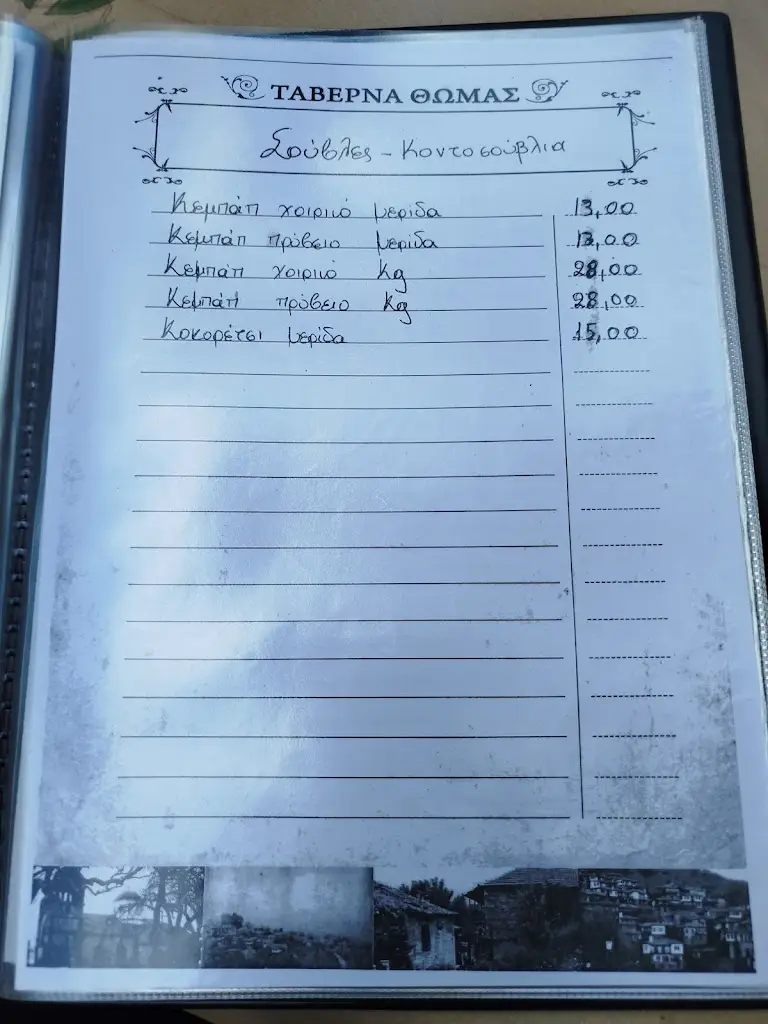 ΤΑΒΕΡΝΑ ΘΩΜΑΣ
Σούβλες - Κοντοσούβλια
Κεμπάπ χοιρινό μερίδα 13,00
Κεμπάπ πρόβειο μερίδα 13,00
Κεμπάπ χοιρινό Kg 28,00
Κεμπάπ πρόβειο Kg 28,00
Κοκορέτσι μερίδα 15,00